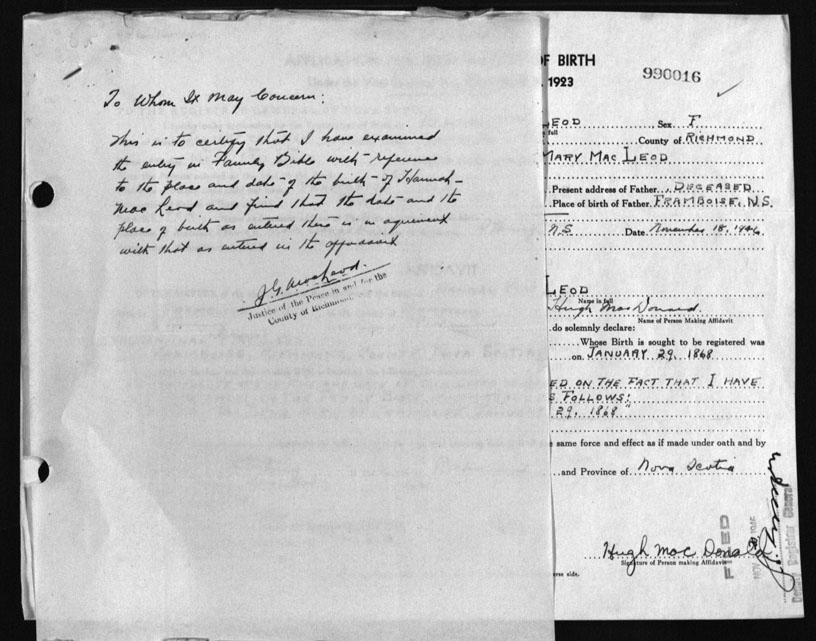 To Whom It May Concern:
This is to certify that I have examined
the entry in Family Bible with reference
to the place and date of the birth of Hannah
Mac Leod and find that the date and the
place of birth as entered there is in agreement
with that as entered in the
J.G. MacLeod.
Justice of the Peace in and for the
County of Richmond
OF BIRTH
1923
990016
LEOD Sex F
full
County of RICHMOND
MARY MAC LEOD
Present address of Father DECEASED
Place of birth of Father FRAMBOISE, N.S.
N.S Date November 18, 1946
LEOD
Name in full
Hugh MacDonald
Name of Person Making Affidavit
do solemnly declare:
Whose Birth is sought to be registered was
on JANUARY 29, 1868
ED ON THE FACT THAT I HAVE
S FOLLOWS:
29, 1868"
same force and effect as if made under oath and by
and Province of Nova Scotia
Hugh Mac Donald
Signature of Person making Affidavit
erse side.
FILED
Deputy Registrar General